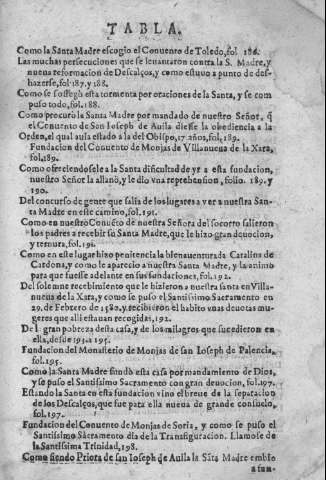 TABLA.
Como la Santa Madre escogio el Conuento de Toledo, fol. 186.
Las muchas persecuciones que se leuantaron contra la S. Madre, y
nueua reformacion de Descalços, y como estuuo a punto de des-
hazerse, fol 187. y 188.
Como se sossegò esta tormenta por oraciones de la Santa, y se com
puso todo, fol. 188.
Como procurò la Santa Madre por mandado de nuestro Señor, q̃
el Conuento de San Ioseph de Auila diesse la obediencia a la
Orden, el qual auia estado a la del Obispo, 17 años, fol, 189.
Fundacion del Conuento de Monjas de Villanueua de la Xara,
fol. 189.
Como ofreciendosele a la Santa dificultad de yr a esta fundacion,
nuestro Señor la allanò, y le dio vna reprehension, folio. 189. y
190.
Del concurso de gente que salia de los lugares a ver a nuestra San-
ta Madre en este camino, fol. 191.
Como en nuestro Conuẽto de nuestra Señora del socorro salieron
los padres a recebir su Santa Madre, que le hizo gran deuocion,
y ternura, fol. 191.
Como en este lugar hizo penitencia la bienauenturada Catalina de
Cardona, y como le aparecio a nuestra Santa Madre, y la animo
para que fuesse adelante en sus fundaciones, fol. 192.
Del solemne recebimiento que le hizieron a nuestra santa en Villa-
nueua de la Xara, y como se puso el Santissimo Sacramento en
29. de Febrero de 1580. y recibieron el habito vnas deuotas mu-
geres que alli estauan recogidas, 192.
De la gran pobreza desta casa, y de los milagros que sucedieron en
ella, desde 193. a 195.
Fundacion del Monasterio de Monjas de san Ioseph de Palencia,
fol. 195.
Como la Santa Madre fundò esta casa por mandamiento de Dios,
y se puso el Santissimo Sacramento con gran deuocion, fol. 197.
Estando la Santa en esta fundacion vino el breue de la separacion
de los Descalços, que fue para ella nueua de grande consuelo,
fol. 197.
Fundacion del Conuento de Monjas de Soria, y como se puso el
Santissimo Sacramento dia de la Transfiguracion. Llamose de
la Santissima Trinidad, 198.
Como siendo Priora de san Ioseph de Auila la Sãta Madre embio
a fun-